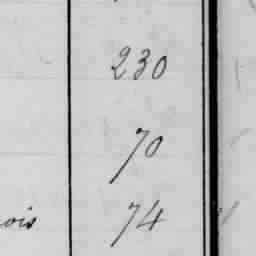 230
70
ois 74